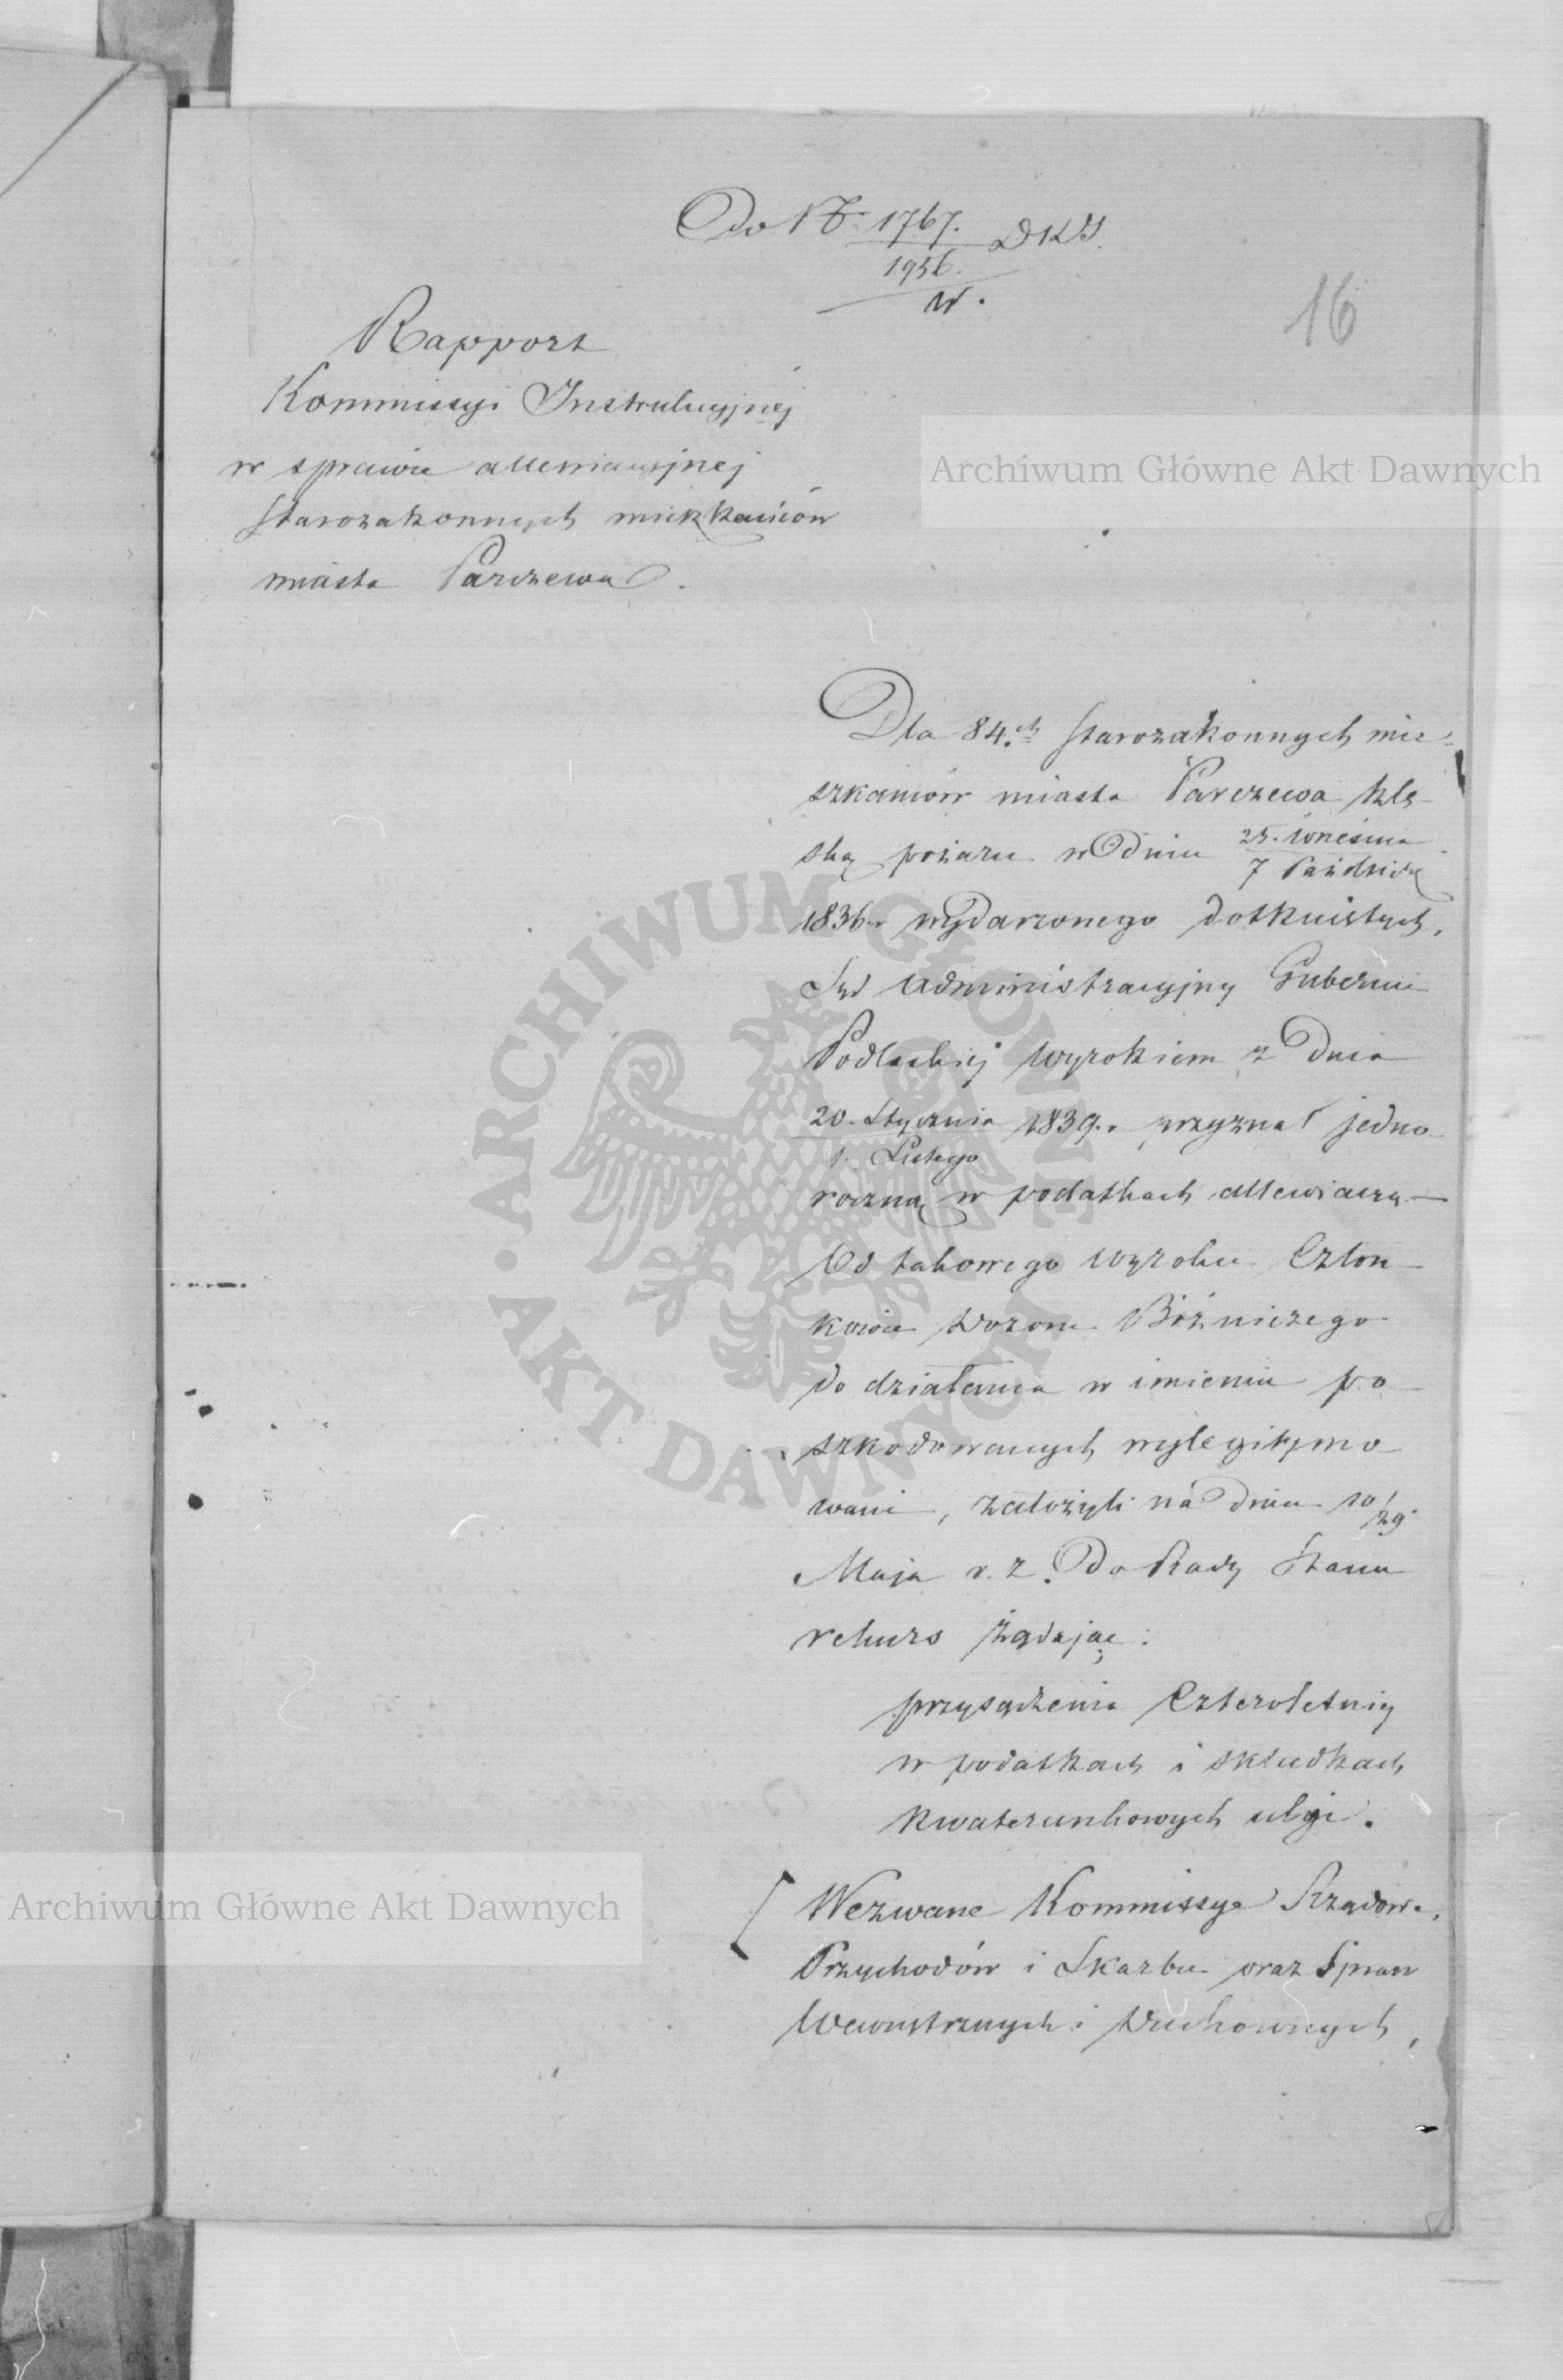 Do N° 1767. DKJ.
1936.
W.
16
Rapport
Kommissyi Instrukcyjnéj
w sprawie allewiacyjnej
starozakonnych mieszkańców
miasta Parczewa.
Archiwum Główne Akt Dawnych
Dla 84.ch starozakonnych mie-
szkańców miasta Parczewa klę-
ską pożaru w dniu 25. Września
7 Paździer
1836 r. wydarzonego dotkniętych,
Sąd Administracyjny Gubernii
Podlaskiej wyrokiem z dnia
20. Stycznia 1839. przyznał jedno-
1. Lutego
roczną w podatkach allewiacyą —
Od takowego wyroku Człon-
kowie Dozoru Bóżniczego
do działania w imieniu po-
szkodowanych wylegitymo-
wani, założyli na dniu 10/29
Maja r. z. do Rady Stanu
rekurs żądając:
przysądzenia czteroletniej
w podatkach i składkach
kwaterunkowych ulgi.
Archiwum Główne Akt Dawnych
Wezwane Kommissye Rządowe,
Przychodów i Skarbu oraz Spraw
Wewnętrznych i Duchownych,
ARCHIWUM GŁÓWNE • AKT DAWNYCH •